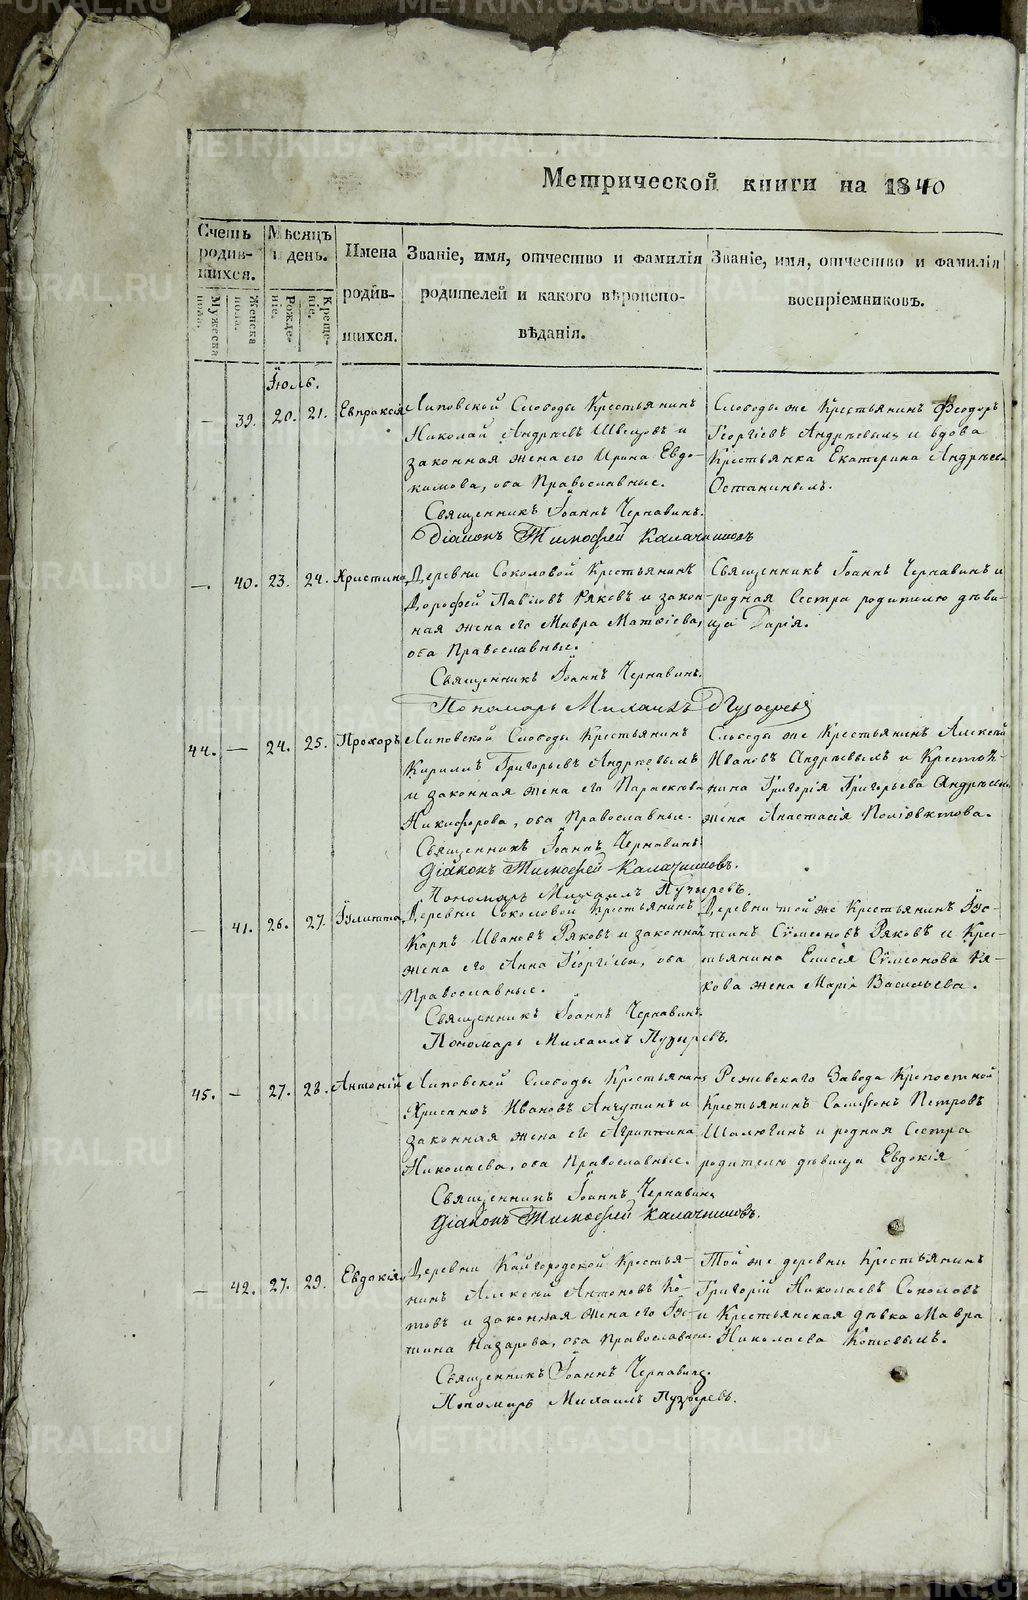 METRIKI.GASO-URAL.RU
Метрической книги на 1840
Счетъ родив-шихся.
Мужеска пола.
Женска пола.
Мѣсяцъ и день.
Рожде-ніе.
Креще-ніе.
Имена родив-шихся.
Званіе, имя, отчество и фамилія
родителей и какого вѣроиспо-
вѣданія.
Званіе, имя, отчество и фамилія
воспріемниковъ.
Іюль.
— 39. 20. 21. Евпраксія
Липовской Слободы Крестьянинъ
Николай Андреевъ Швецовъ и
законная жена его Ирина Евдо-
кимова, оба Православные.
Священникъ Іоаннъ Чернавинъ.
Діаконъ Тимофей Калачниковъ
Слободы же Крестьянинъ Феодоръ
Георгіевъ Андреевыхъ и вдова
Крестьянка Екатерина Андреева
Останиныхъ.
— 40. 23. 24. Христина
Деревни Соколовой Крестьянинъ
Дорофей Павловъ Ряковъ и закон-
ная жена его Мавра Матѳіева,
оба Православные.
Священникъ Іоаннъ Чернавинъ.
Пономарь Михаилъ Пузыревъ
Священникъ Іоаннъ Чернавинъ и
родная Сестра родителю дѣви-
ца Дарія.
44. — 24. 25. Прохоръ
Липовской Слободы Крестьянинъ
Кириллъ Григорьевъ Андреевыхъ
и законная жена его Параскева
Никифорова, оба Православные.
Священникъ Іоаннъ Чернавинъ
Діаконъ Тимофей Калачниковъ.
Пономарь Михаилъ Пузыревъ.
Слободы же Крестьянинъ Алексей
Ивановъ Андреевыхъ и Крестья-
нина Григорія Григорьева Андреевыхъ
жена Анастасія Поліевктова.
— 41. 26. 27. Іулитта
Деревни Соколовой Крестьянинъ
Карпъ Ивановъ Ряковъ и законная
жена его Анна Георгіева, оба
Православные.
Священникъ Іоаннъ Чернавинъ.
Пономарь Михаилъ Пузыревъ.
Деревни той же Крестьянинъ Іус-
тинъ Сѵмеоновъ Ряковъ и Крес-
тьянина Елисея Сѵмеонова Ря-
кова жена Марія Васильева.
45. — 27. 28. Антоній
Липовской Слободы Крестьянинъ
Хрисанѳъ Ивановъ Анчутинъ и
законная жена его Агрипина
Николаева, оба Православные.
Священникъ Іоаннъ Чернавинъ
Діаконъ Тимофей Калачниковъ.
Режевскаго Завода Крепостной
Крестьянинъ Самсонъ Петровъ
Шалюгинъ и родная Сестра
родителю дѣвица Евдокія
— 42. 27. 29. Евдокія
Деревни Кайгородской Крестья-
нинъ Алексей Антоновъ Ко-
товъ и законная жена его Іус-
тина Назарова, оба Православные.
Священникъ Іоаннъ Чернавинъ.
Пономарь Михаилъ Пузыревъ.
Той же деревни Крестьянинъ
Григорій Николаевъ Соколовъ
и Крестьянская дѣвка Мавра
Николаева Котовыхъ.